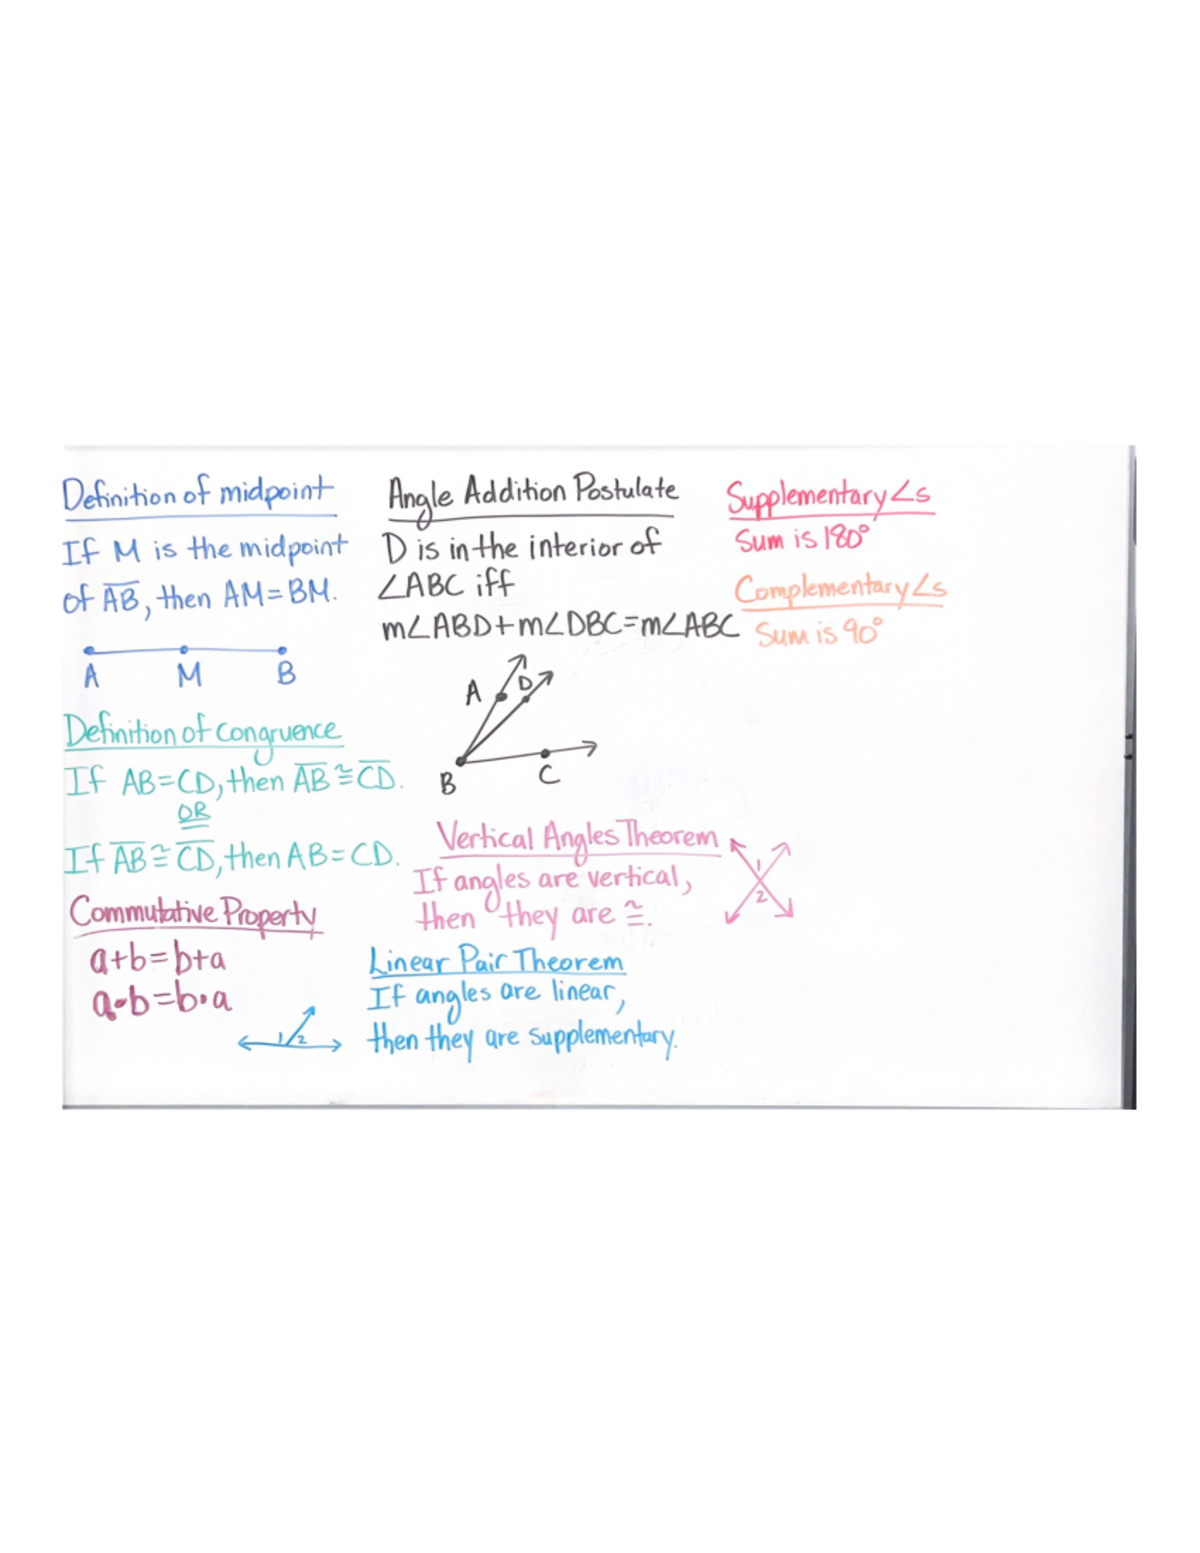 Definition of midpoint
If M is the midpoint
of A̅B̅, then AM=BM.
A M B
Definition of Congruence
If AB=CD, then A̅B̅≅C̅D̅.
OR
If A̅B̅≅C̅D̅, then AB=CD.
Commutative Property
a+b=b+a
a•b=b•a
Angle Addition Postulate
D is in the interior of
∠ABC iff
m∠ABD+m∠DBC=m∠ABC
A D
B C
Vertical Angles Theorem
If angles are vertical,
then they are ≅.
1
2
Linear Pair Theorem
If angles are linear,
then they are supplementary.
1 2
Supplementary ∠s
Sum is 180°
Complementary ∠s
Sum is 90°